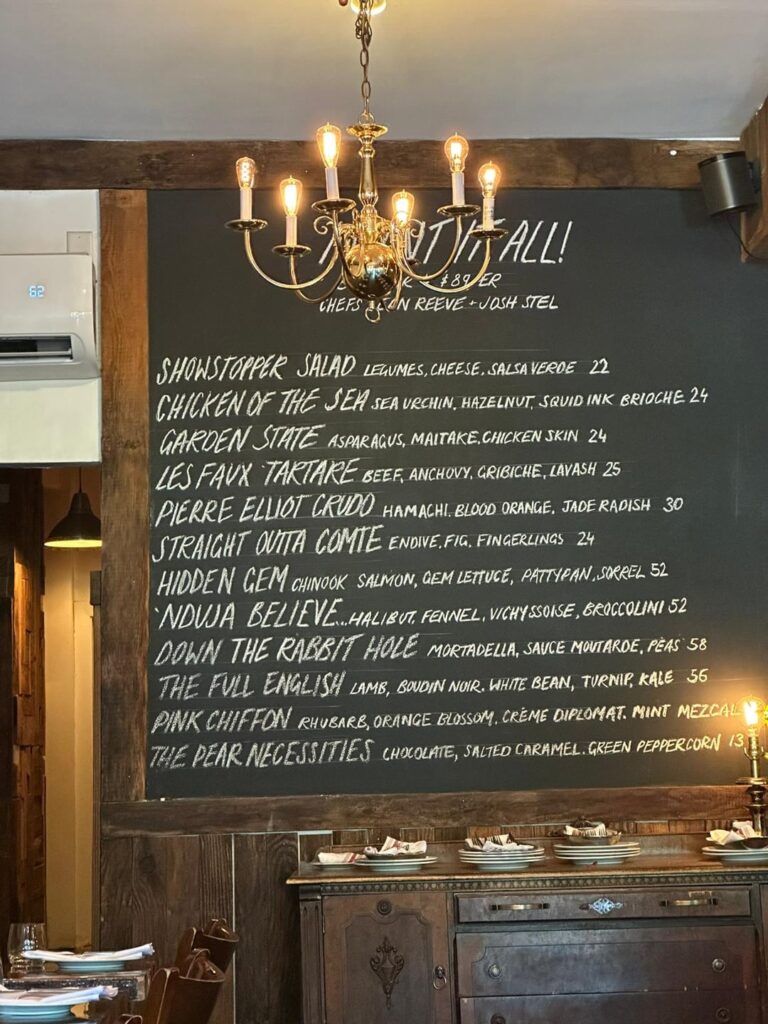 IT ALL!
$89
CHEFS REEVE + JOSH STEL
SHOWSTOPPER SALAD LEGUMES, CHEESE, SALSA VERDE 22
CHICKEN OF THE SEA SEA URCHIN, HAZELNUT, SQUID INK BRIOCHE 24
GARDEN STATE ASPARAGUS, MAITAKE, CHICKEN SKIN 24
LES FAUX TARTARE BEEF, ANCHOVY, GRIBICHE, LAVASH 25
PIERRE ELLIOT CRUDO HAMACHI, BLOOD ORANGE, JADE RADISH 30
STRAIGHT OUTTA COMTE ENDIVE, FIG, FINGERLINGS 24
HIDDEN GEM CHINOOK SALMON, GEM LETTUCE, PATTYPAN, SORREL 52
'NDUJA BELIEVE... HALIBUT, FENNEL, VICHYSSOISE, BROCCOLINI 52
DOWN THE RABBIT HOLE MORTADELLA, SAUCE MOUTARDE, PEAS 58
THE FULL ENGLISH LAMB, BOUDIN NOIR, WHITE BEAN, TURNIP, KALE 56
PINK CHIFFON RHUBARB, ORANGE BLOSSOM, CRÈME DIPLOMAT, MINT MEZCAL
THE PEAR NECESSITIES CHOCOLATE, SALTED CARAMEL, GREEN PEPPERCORN 13
62